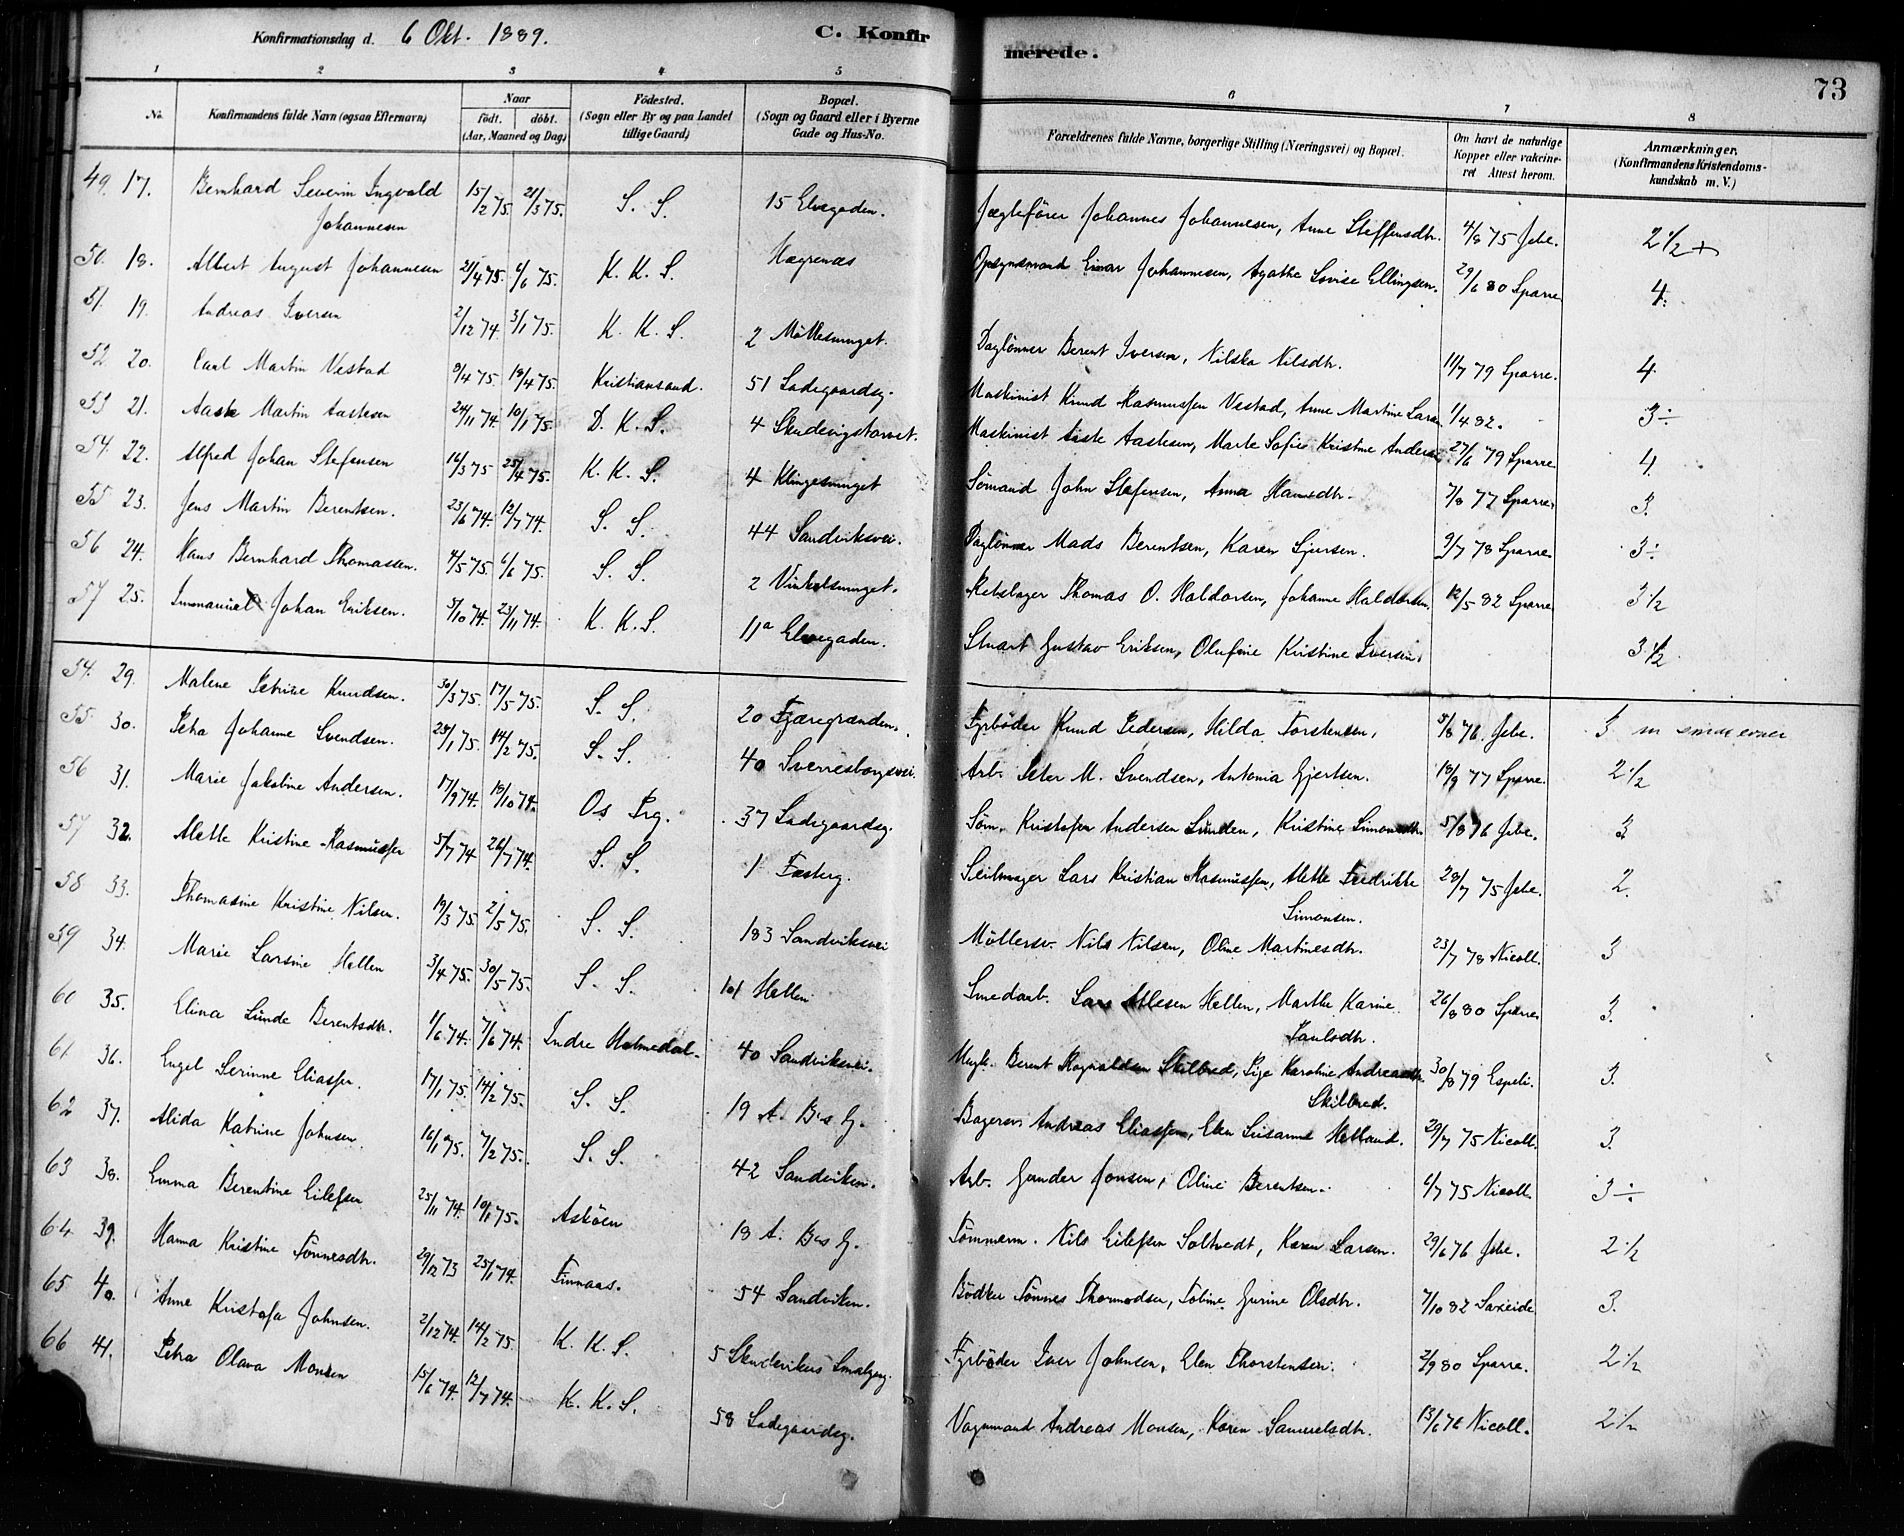 Konfirmationsdag d. 6 Okt. 1889. C. Konfirmerede. 73
1 2 3 4 5 6 7 8
No. Konfirmandens fulde Navn (ogsaa Efternavn) Naar født. døbt. (Aar, Maaned og Dag) Fødested. (Sogn eller By og paa Landet tillige Gaard) Bopæl. (Sogn og Gaard eller i Byerne Gade og Hus-No. Forældrenes fulde Navne, borgerlige Stilling (Næringsvei) og Bopæl. Om havt de naturlige Kopper eller vakcineret Attest herom. Anmærkninger. (Konfirmandens Kristendomskundskab m. V.)
49. 17. Bernhard Severin Ingvald Johannesen 15/2 75. 21/3 75. S. S. 15 Elvegaden. Jægtefører Johannes Johannesen, Anne Steffensdtr. 4/8 75 Jebe. 2 1/2 +
50. 18. Albert August Johannesen 21/4 75. 6/6 75. K. K. S. Hægrenæs Opsynsmand Einar Johannesen, Agathe Lovise Ellingsen. 29/6 80 Sparre 4.
51. 19. Andreas Iversen 2/12 74. 3/1 75. K. K. S. 2 Møllesmuget. Daglønner Berent Iversen, Nilska Nilsdtr. 11/7 79 Sparre. 4
52 20. Carl Martin Vestad 9/4 75. 18/4 75. Kristiansund. 51 Ladegaardsg. Maskinist Knud Rasmussen Vestad, Anne Martine Larsen 1/4 82. 3 ÷
53 21. Aaste Martin Aastesen 24/11 74. 10/1 75. D. K. S. 4 Skudevigstorvet. Maskinist Aaste Aastesen, Marte Sofie Kristine Andersen 27/6 79 Sparre 4.
54. 22. Alfred Johan Stefensen 16/3 75 25/4 75. K. K. S. 4 Klingesmuget Sömand John Stefensen, Anna Hansdtr. 7/8 77 Sparre. 3.
55 23. Jens Martin Berentsen. 23/6 74. 12/7 74. S. S. 44 Sandviksvei. Daglønner Mads Berentsen, Karen Sjursen. 9/7 78 Sparre 3 ÷
56 24. Hans Bernhard Thomassen. 4/5 75. 6/6 75. S. S. 2 Vinkelsmuget. Rebslager Thomas O. Haldorsen, Johanne Haldorsen. 12/5 82 Sparre 3 1/2
57 25. Immanuel Johan Eriksen. 5/10 74. 23/11 74. K. K. S. 11a Elvegaden. Stuart Gustav Eriksen, Olufine Kristine Iversen. 3 1/2
54. 29. Malene Petrine Knudsen. 30/3 75. 17/5 75. S. S. 20 Fjæregrænden. Fyrbøder Knud Pedersen, Hilda Torstensen, 5/8 76. Jebe. 3 m smaa evner
55 30. Petra Johanne Svendsen. 25/1 75. 14/2 75. S. S. 40 Sverresborgsvei. Arb. Peter M. Svendsen, Antonia Gjertsen. 18/9 77 Sparre. 2 1/2
56 31. Marie Jakobine Andersen. 17/9 74. 18/10 74. Os Prg. 37 Ladegaardsg. Söm. Kristofer Andersen Lunden, Kristine Simonsdtr. 5/8 76 Jebe. 3
57 32. Mette Kristine Rasmussen 5/7 74 26/7 74. S. S. 1 Fæsterg. Seilmager Lars Kristian Rasmussen, Mette Fredrikke Simonsen. 28/7 75 Jebe. 2.
58 33. Thomasine Kristine Nilsen. 19/3 75. 2/5 75. S. S. 183 Sandviksvei Möllersv. Nils Nilsen, Oline Martinesdtr. 23/7 78 Nicoll. 3
59 34. Marie Larsine Hellen 3/4 75. 30/5 75. S. S. 101 Hellen Smedarb. Lars Allesen Hellen, Marthe Karine Paulsdtr. 26/8 80 Sparre 3.
60 35. Elina Lunde Berentsdtr. 1/6 74. 7/6 74. Indre Holmedal. 40 Sandviksvei. Berent Rognaldsen Skilbred, Sige Karoline Andreasdtr. Skilbred. 30/8 79 Espeli. 3.
61 36. Engel Serinne Eliassen. 17/1 75. 14/2 75. S. S. 19 A. B's G. Bagersv. Andreas Eliassen, Elen Susanne Helland. 29/7 75 Nicoll. 3.
62 37. Alida Katrine Johnsen. 16/1 75. 7/2 75. S. S. 42 Sandviken. Arb. Gunder Jonsen, Oline Berentsen. 6/7 75 Nicoll. 3 ÷
63 38. Emma Berentine Eilefsen 25/11 74. 10/1 75. Askøen 18 A. B's G. Tömmerm. Nils Eilefsen Soltvedt, Karen Larsen. 29/6 76 Jebe. 2 1/2
64 39. Hanna Kristine Tönnesdtr. 29/12 73 25/1 74. Finnaas. 54 Sandviken. Bödker Tönnes Thormodsen, Tobine Gurine Olsdtr. 7/10 82 Saxeide 3.
65 40. Anne Kristofa Johnsen. 2/12 74. 14/2 75. K. K. S. 5 Skudevikens Smalgang. Fyrbøder Iver Johnsen, Elen Thorstensen. 2/9 80 Sparre. 2 1/2
66 41. Petra Olava Monsen 15/6 74. 12/7 74. K. K. S. 58 Ladegaardsg. Vognmand Andreas Monsen, Karen Samuelsdtr. 13/6 76 Nicoll. 2 1/2